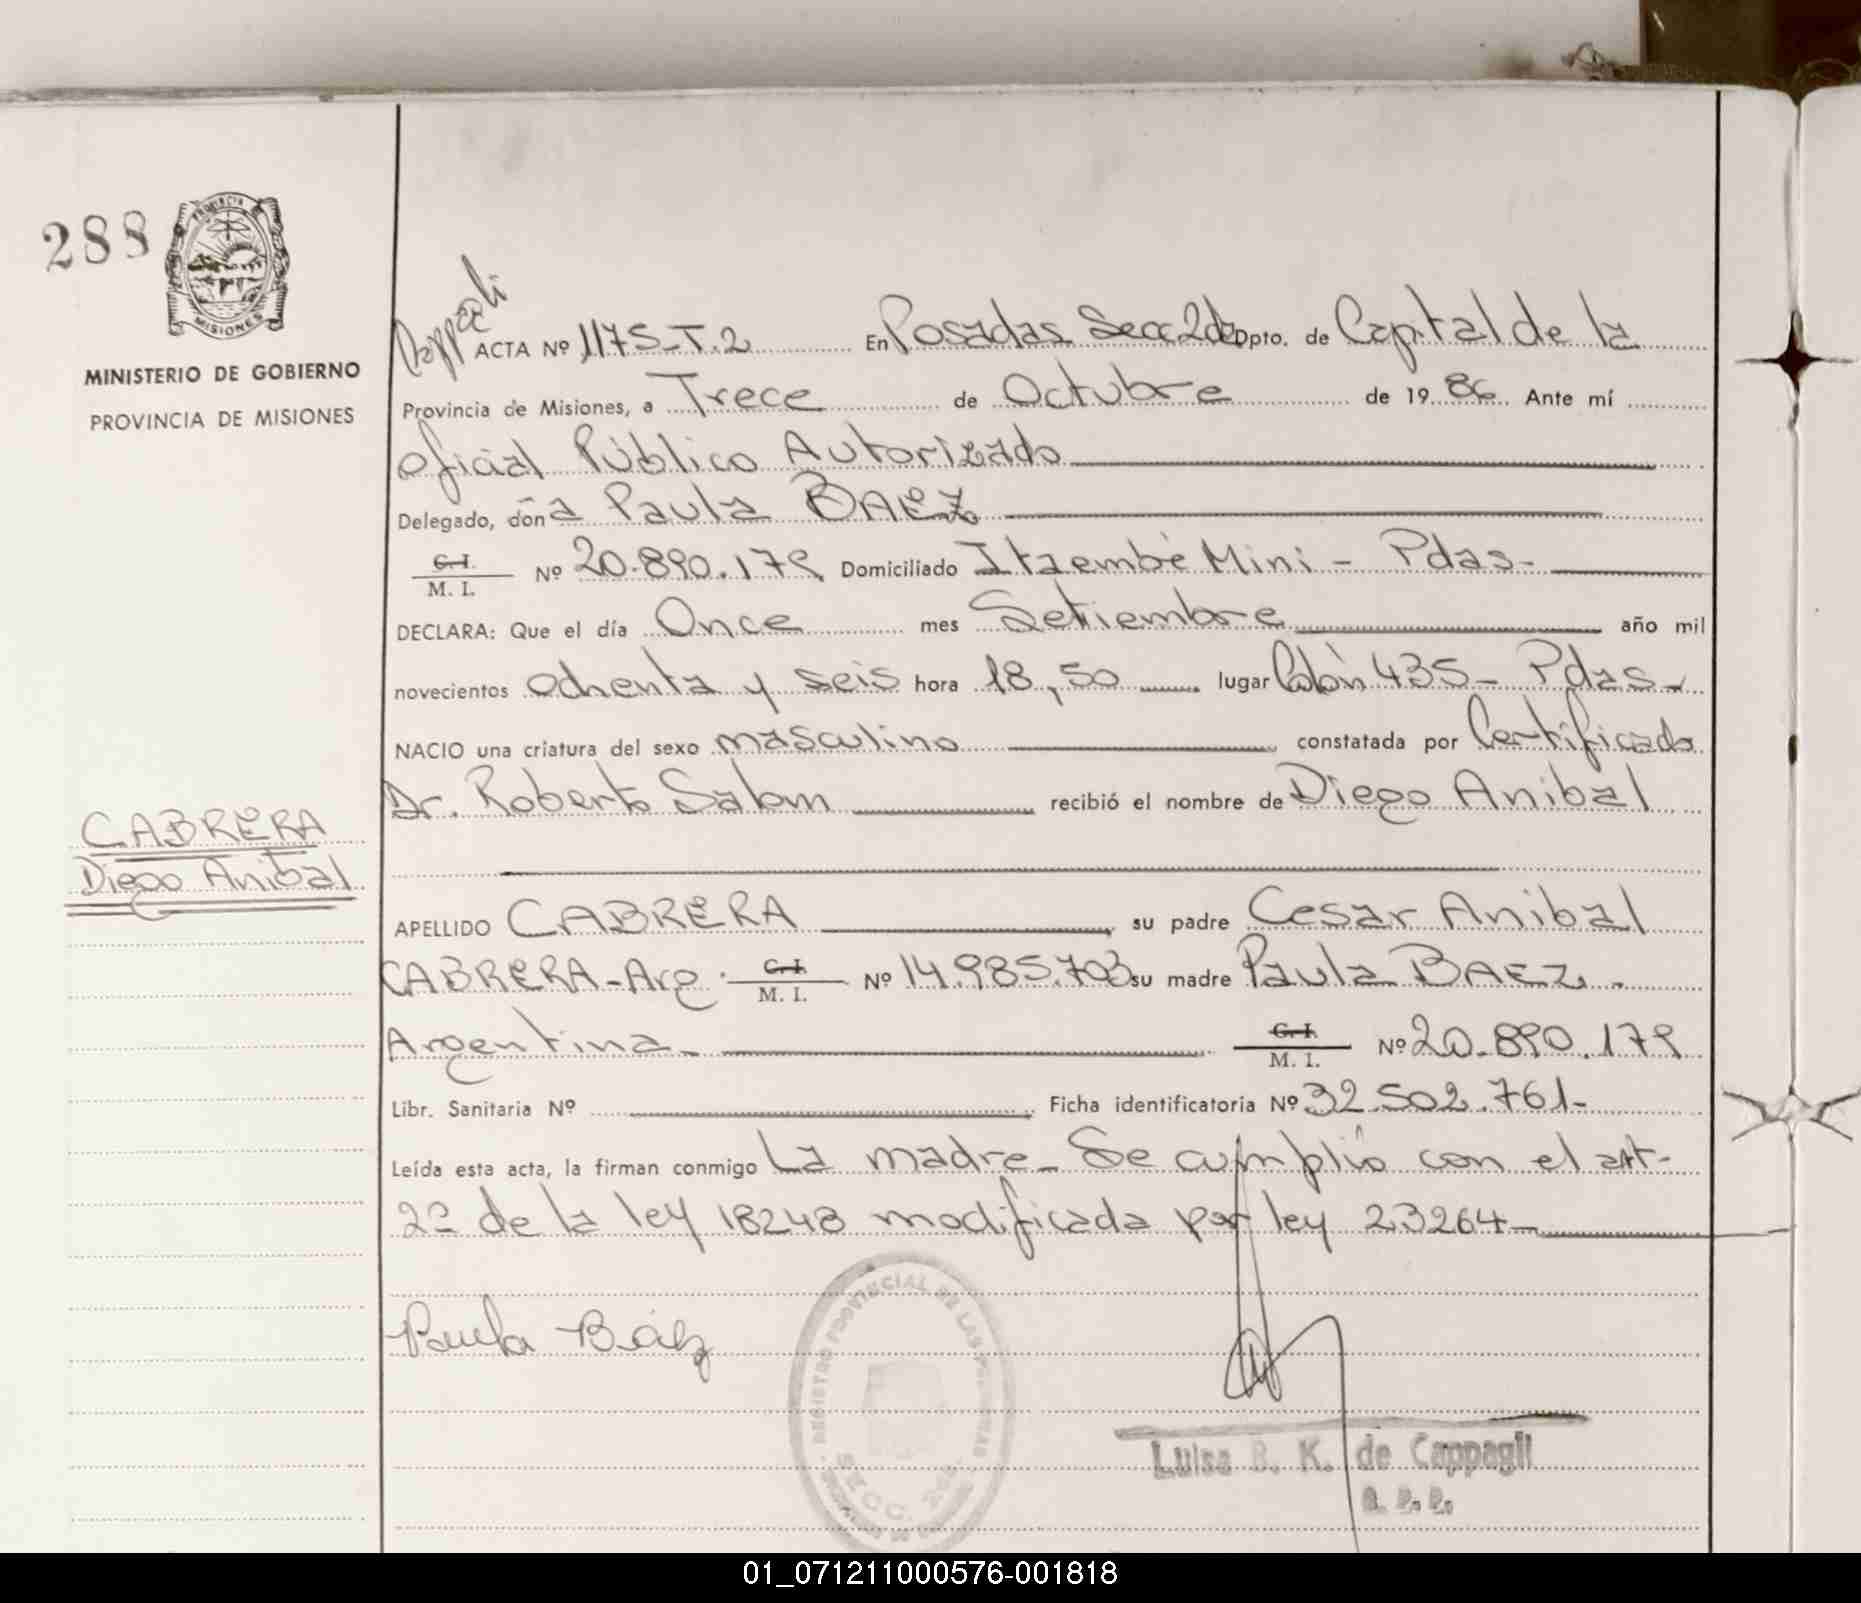 288
PROVINCIA
MISIONES
MINISTERIO DE GOBIERNO
PROVINCIA DE MISIONES
CABRERA
Diego Anibal
ACTA Nº 1175-T.2 En Posadas Secc 2da Dpto. de Capital de la
Provincia de Misiones, a Trece de Octubre de 19 86 Ante mí
Oficial Público Autorizado
Delegado, don a Paula BAEZ
C. I.
M. I. Nº 20.890.179 Domiciliado Itaembé Mini - Pdas-
DECLARA: Que el día Once mes Setiembre año mil
novecientos ochenta y seis hora 18,50 lugar Colón 435- Pdas-
NACIO una criatura del sexo masculino constatada por Certificado
Dr. Roberto Salom recibió el nombre de Diego Anibal
APELLIDO CABRERA su padre Cesar Anibal
CABRERA-Arg. C. I. M. I. Nº 14.985.703 su madre Paula BAEZ.
Argentina- C. I. M. I. Nº 20.890.179
Libr. Sanitaria Nº Ficha identificatoria Nº 32.502.761-
Leída esta acta, la firman conmigo La madre- Se cumplió con el art-
2º de la ley 18248 modificada por ley 23264-
Paula Báez
REGISTRO PROVINCIAL DE LAS PERSONAS
SECC. 2da.
Luisa B. K. de Cappagli
01_071211000576-001818